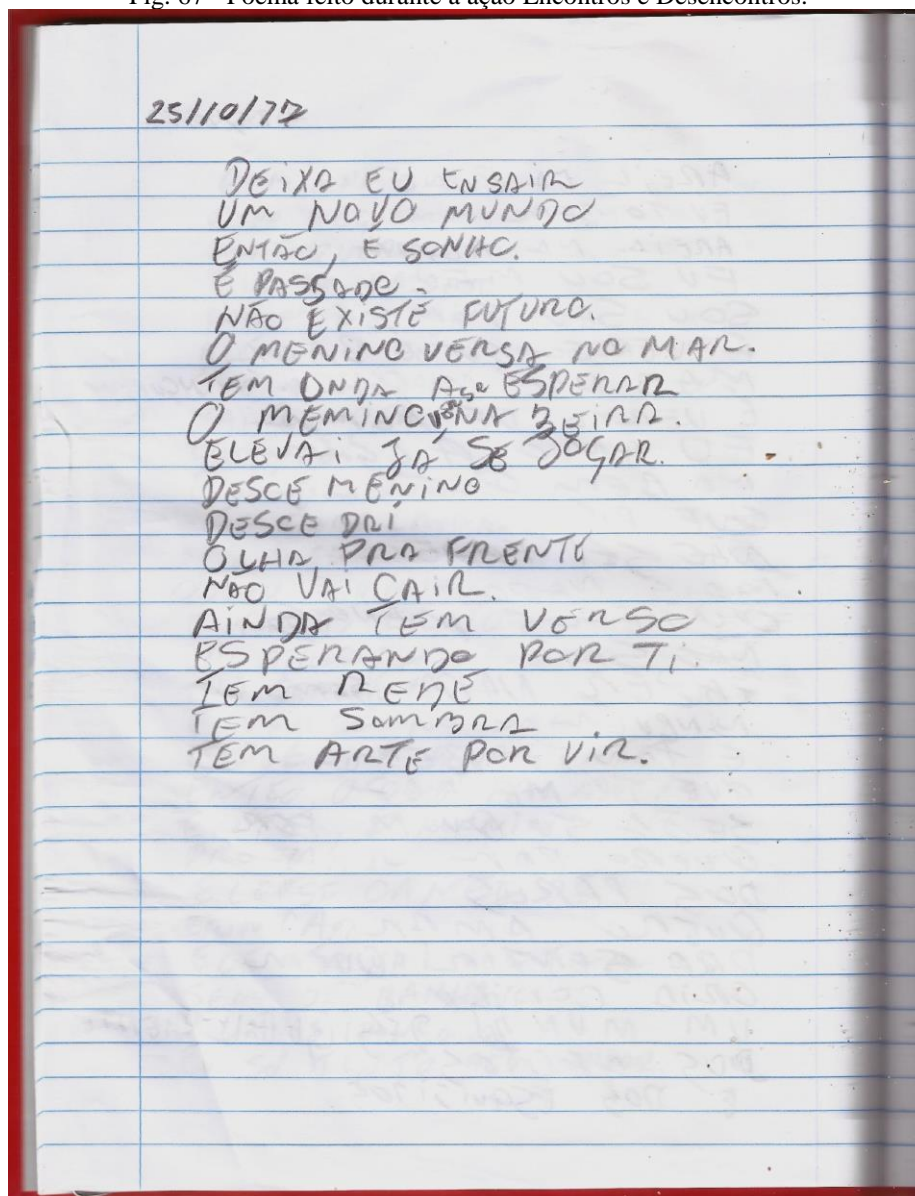 Fig. 67 - Poema feito durante a ação Encontros e Desencontros.
25/10/17
DEIXA EU ENSAIR
UM NOVO MUNDO
ENTÃO, É SONHO.
É PASSADO.
NÃO EXISTE FUTURO.
O MENINO VERSA NO MAR.
TEM ONDA A ESPERAR
O MEMINO NA BEIRA.
ELE VAI JÁ SE JOGAR.
DESCE MENINO
DESCE DAÍ
OLHA PRA FRENTE
NÃO VAI CAIR.
AINDA TEM VERSO
ESPERANDO POR TI.
TEM REDE
TEM SOMBRA
TEM ARTE POR VIR.